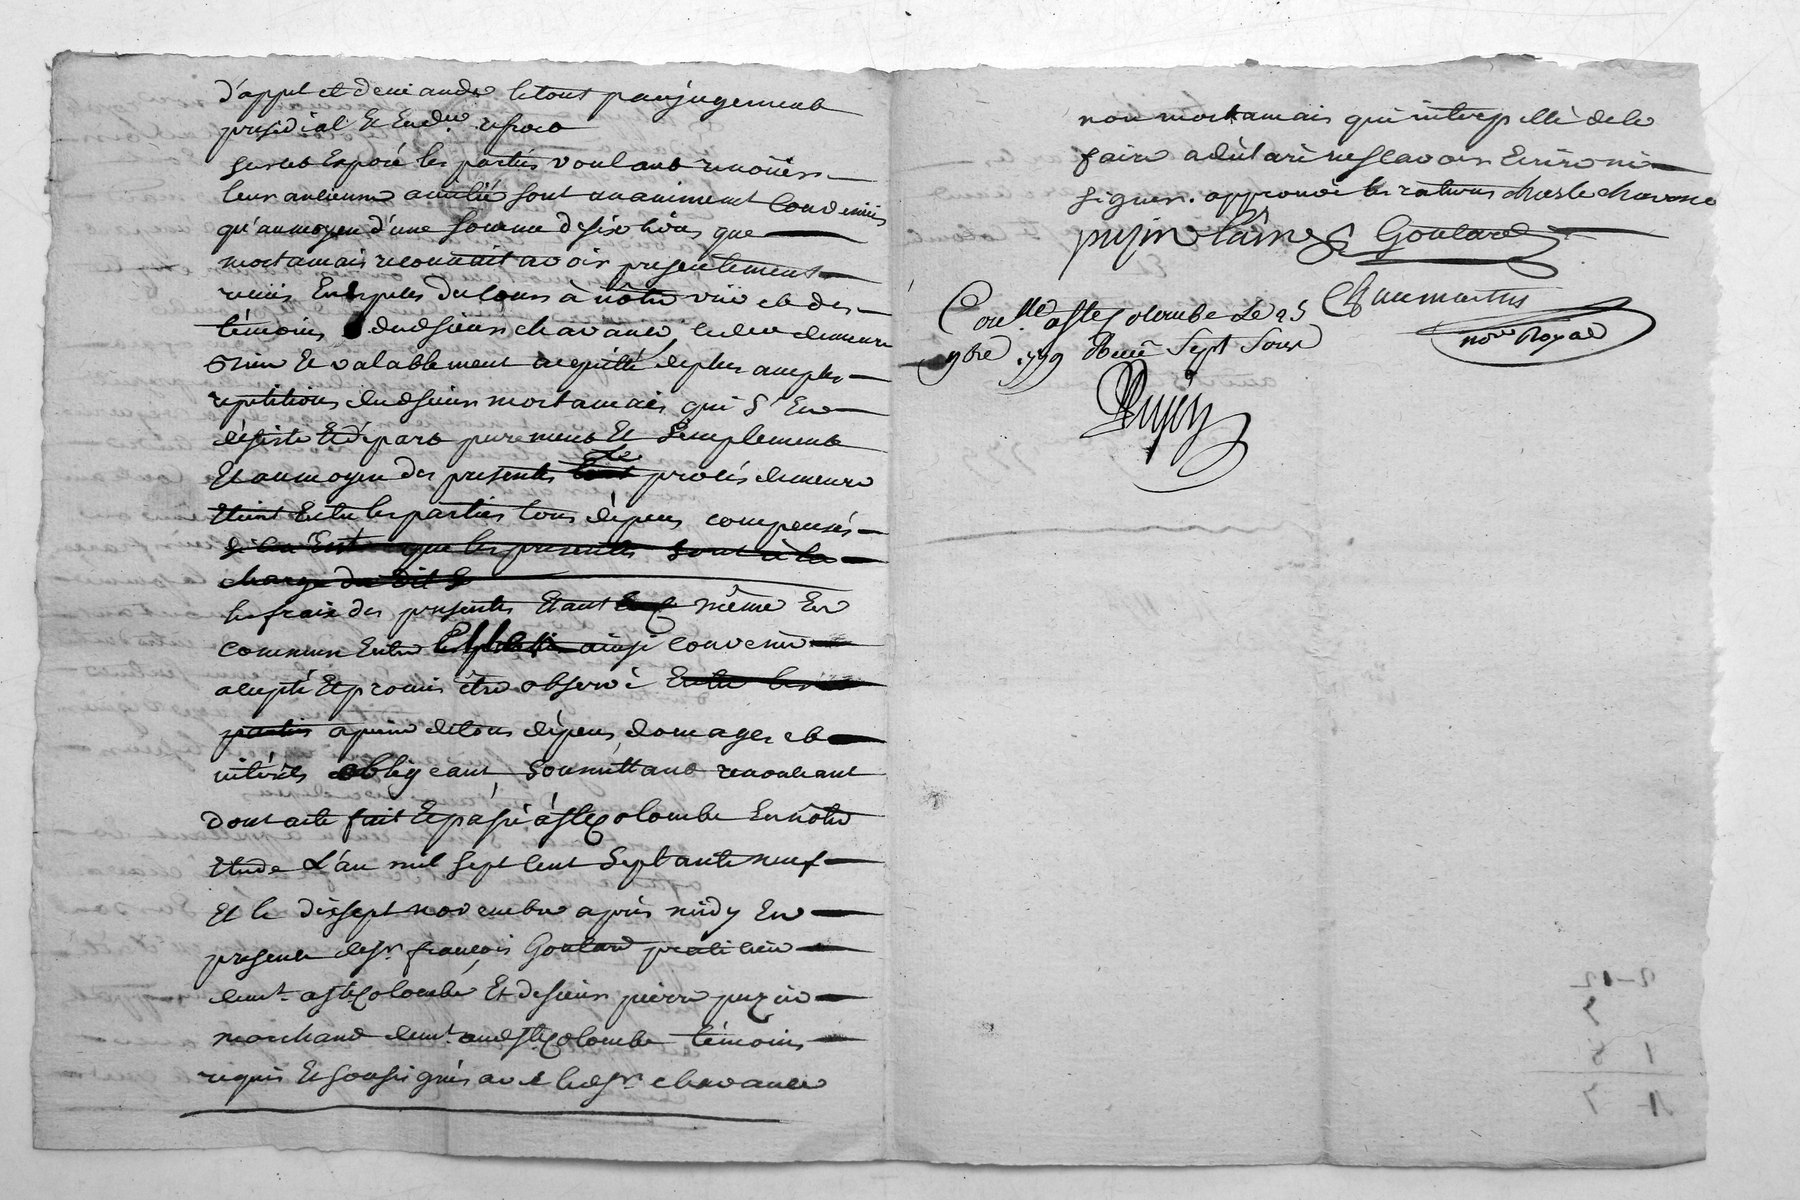 d'appel et demander le tout par jugement
presidial Et En der.
sur cet Exposé les parties voulant renoüer
leur ancienne amitié sont unanimement convenües
qu'au moyen d'une somme de six livres que
mortamais reconnait avoir presentement
reçüe En Espèces du cours à nôtre vüe et des
témoins dud sieur chavance led demeure
Bien Et valablement acquitté de plus amples
repetitions dud sieur mortamais qui S'En
désiste Et départ purement Et Simplement
Et au moyen des presentes Le procès demeure
Eteint Entre les parties tous dépens compensés
Si Ce n'Est que les presentes Sont à la
charge du dit S
les frais des presentes Etant même En
commun Entre ainsi convenu
accepté Et promis être observé Entre les
parties a peine de tous dépens domages et
intérêts obligeant Soumettant renonçant
Dont acte fait Et passé à Ste Colombe En nôtre
Etude L'an mil Sept Cent Septante neuf
Et le dix sept novembre après midy En
presence de sr. françois Goulard praticien
demt. a Ste Colombe Et de sieur pierre puzin
marchand demt. aud Ste Colombe témoins
requis Et Soussignés avec led sr. chavance
non mortamais qui interpellé de le
faire a déclaré ne Scavoir Ecrire ni
signer. approuvé les ratures charle chavance
puzin laîné Goulard
Chaumartin
nore Royal
Con.lle a Ste Colombe Le 25
9bre 1779 Reçu Sept Sous
2-12
7
1 8
7